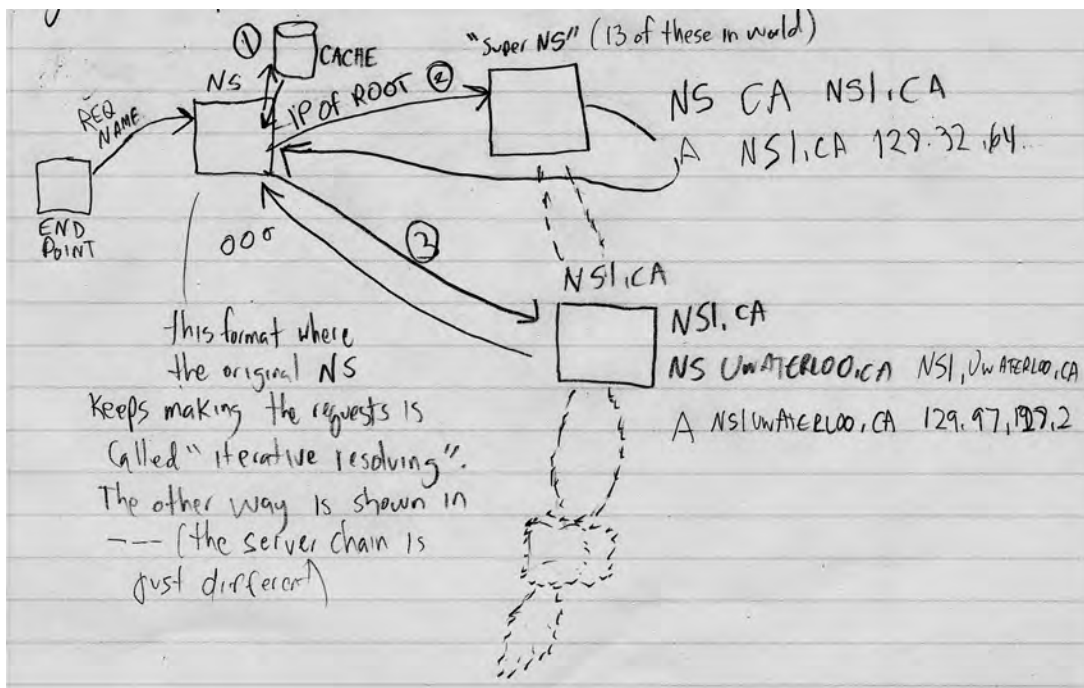 ① CACHE
"Super NS" (13 of these in world)
NS
REQ NAME
IP OF ROOT ②
NS CA NS1.CA
A NS1.CA 128.32.64...
END POINT
③
NS1.CA
NS1.CA
NS UWATERLOO.CA NS1.UWATERLOO.CA
A NS1UWATERLOO.CA 129.97.128.2
this format where
the original NS
keeps making the requests is
called "iterative resolving".
The other way is shown in
--- (the server chain is
just different)